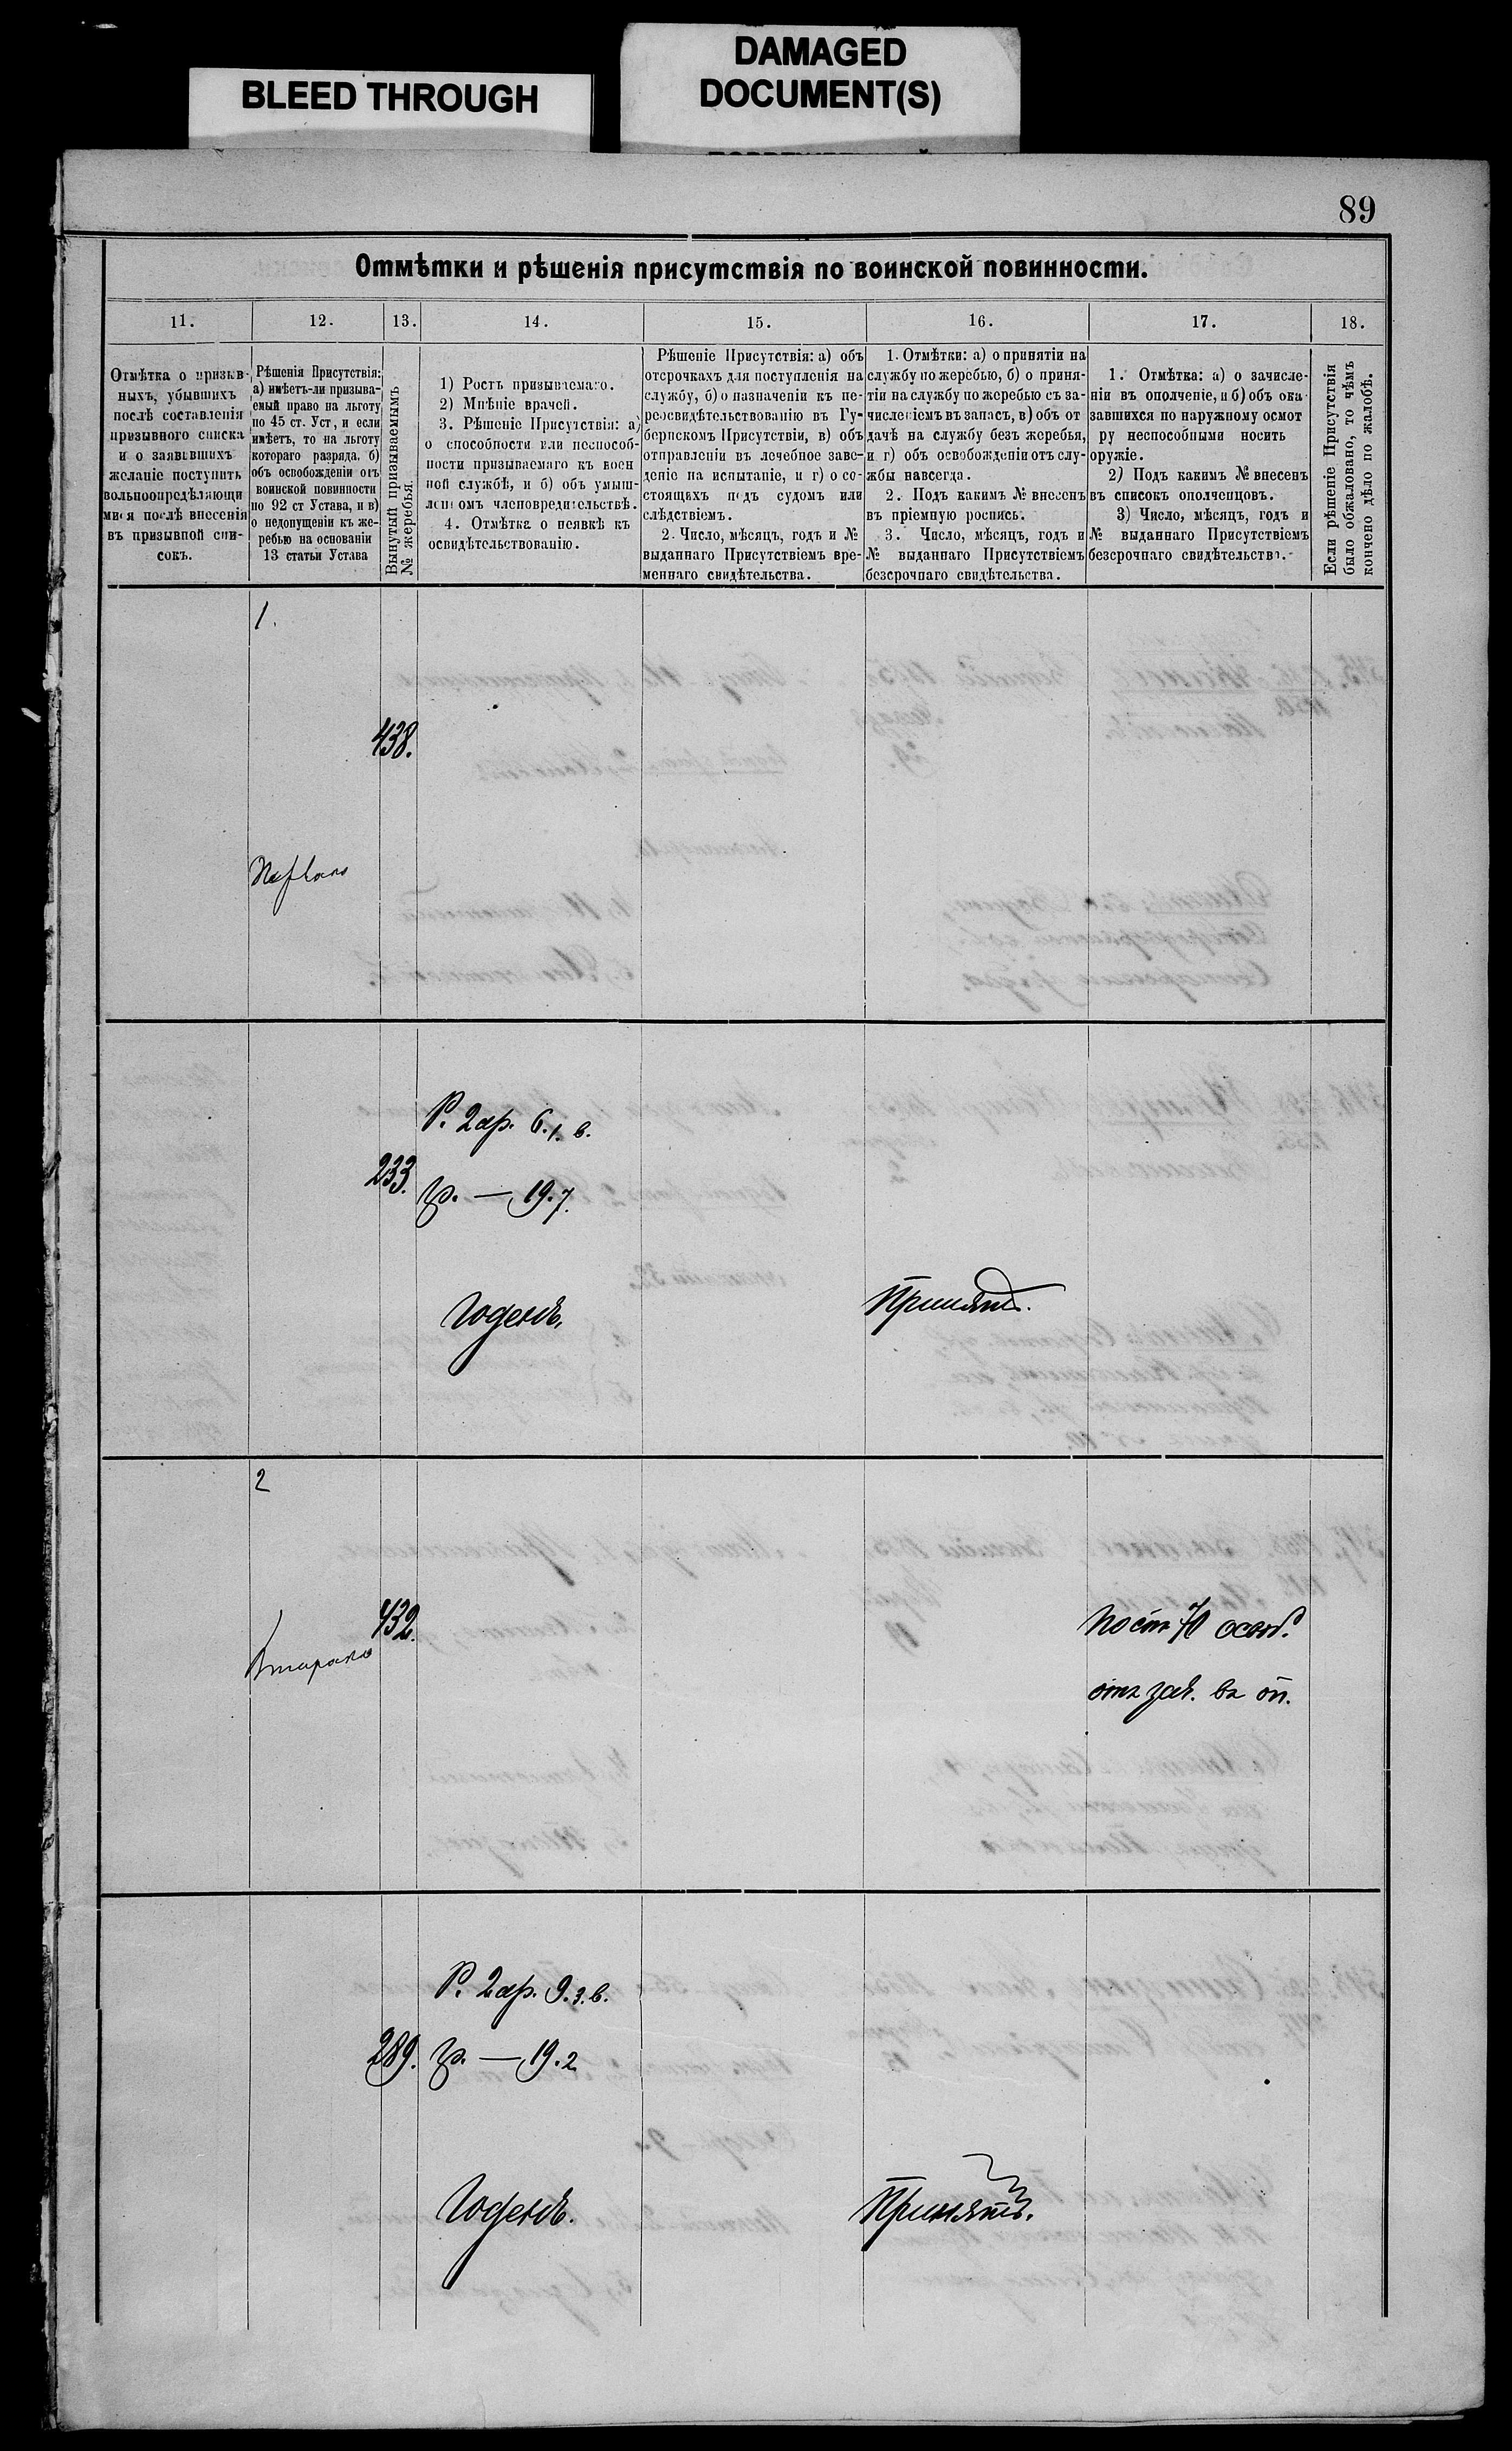 BLEED THROUGH
DAMAGED
DOCUMENT(S)
89
Отмѣтки и рѣшенія присутствія по воинской повинности.
11.
12.
13.
14.
15.
16.
17.
18.
Отмѣтка о призыв-
ныхъ, убывшихъ
послѣ составленія
призывного списка
и о заявившихъ
желаніе поступить
вольноопредѣляющи
мися послѣ внесенія
въ призывной спи-
сокъ.
Рѣшенія Присутствія:
а) имѣетъ-ли призыва-
емый право на льготу
по 45 ст. Уст, и если
имѣетъ, то на льготу
котораго разряда, б)
объ освобожденіи отъ
воинской повинности
по 92 ст Устава, и в)
о недопущеніи къ же-
ребью на основаніи
13 статьи Устава
Вынутый призываемымъ
№ жеребья.
1) Ростъ призываемаго.
2) Мнѣніе врачей.
3. Рѣшеніе Присутствія: а)
о способности или неспособ-
ности призываемаго къ воен
ной службѣ, и б) объ умыш-
леномъ членовредительствѣ.
4. Отмѣтка о неявкѣ къ
освидѣтельствованію.
Рѣшеніе Присутствія: а) объ
отсрочкахъ для поступленія на
службу, б) о назначеніи къ пе-
реосвидѣтельствованію въ Гу-
бернскомъ Присутствіи, в) объ
отправленіи въ лечебное заве-
деніе на испытаніе, и г) о со-
стоящихъ подъ судомъ или
слѣдствіемъ.
2. Число, мѣсяцъ, годъ и №
выданнаго Присутствіемъ вре-
меннаго свидѣтельства.
1. Отмѣтки: а) о принятіи на
службу по жеребью, б) о приня-
тіи на службу по жеребью съ за-
численіемъ въ запасъ, в) объ от
дачѣ на службу безъ жеребья,
и г) объ освобожденіи отъ слу-
жбы навсегда.
2. Подъ какимъ № внесенъ
въ пріемную роспись.
3. Число, мѣсяцъ, годъ и
№ выданнаго Присутствіемъ
безсрочнаго свидѣтельства.
1. Отмѣтка: а) о зачисле-
ніи въ ополченіе, и б) объ ока-
завшихся по наружному осмот
ру неспособными носить
оружіе.
2) Подъ какимъ № внесенъ
въ списокъ ополченцовъ.
3) Число, мѣсяцъ, годъ и
№ выданнаго Присутствіемъ
безсрочнаго свидѣтельства.
Если рѣшеніе Присутствія
было обжаловано, то чѣмъ
кончено дѣло по жалобѣ.
1.
438.
Р. 2 ар. 6.1. в.
233.
гр. — 19.7.
Годенъ.
Принятъ.
2
432.
По ст 70 освоб.
отъ зач. въ оп.
Р. 2 ар. 9.3. в.
289.
гр. — 19.2
Годенъ.
Принятъ.